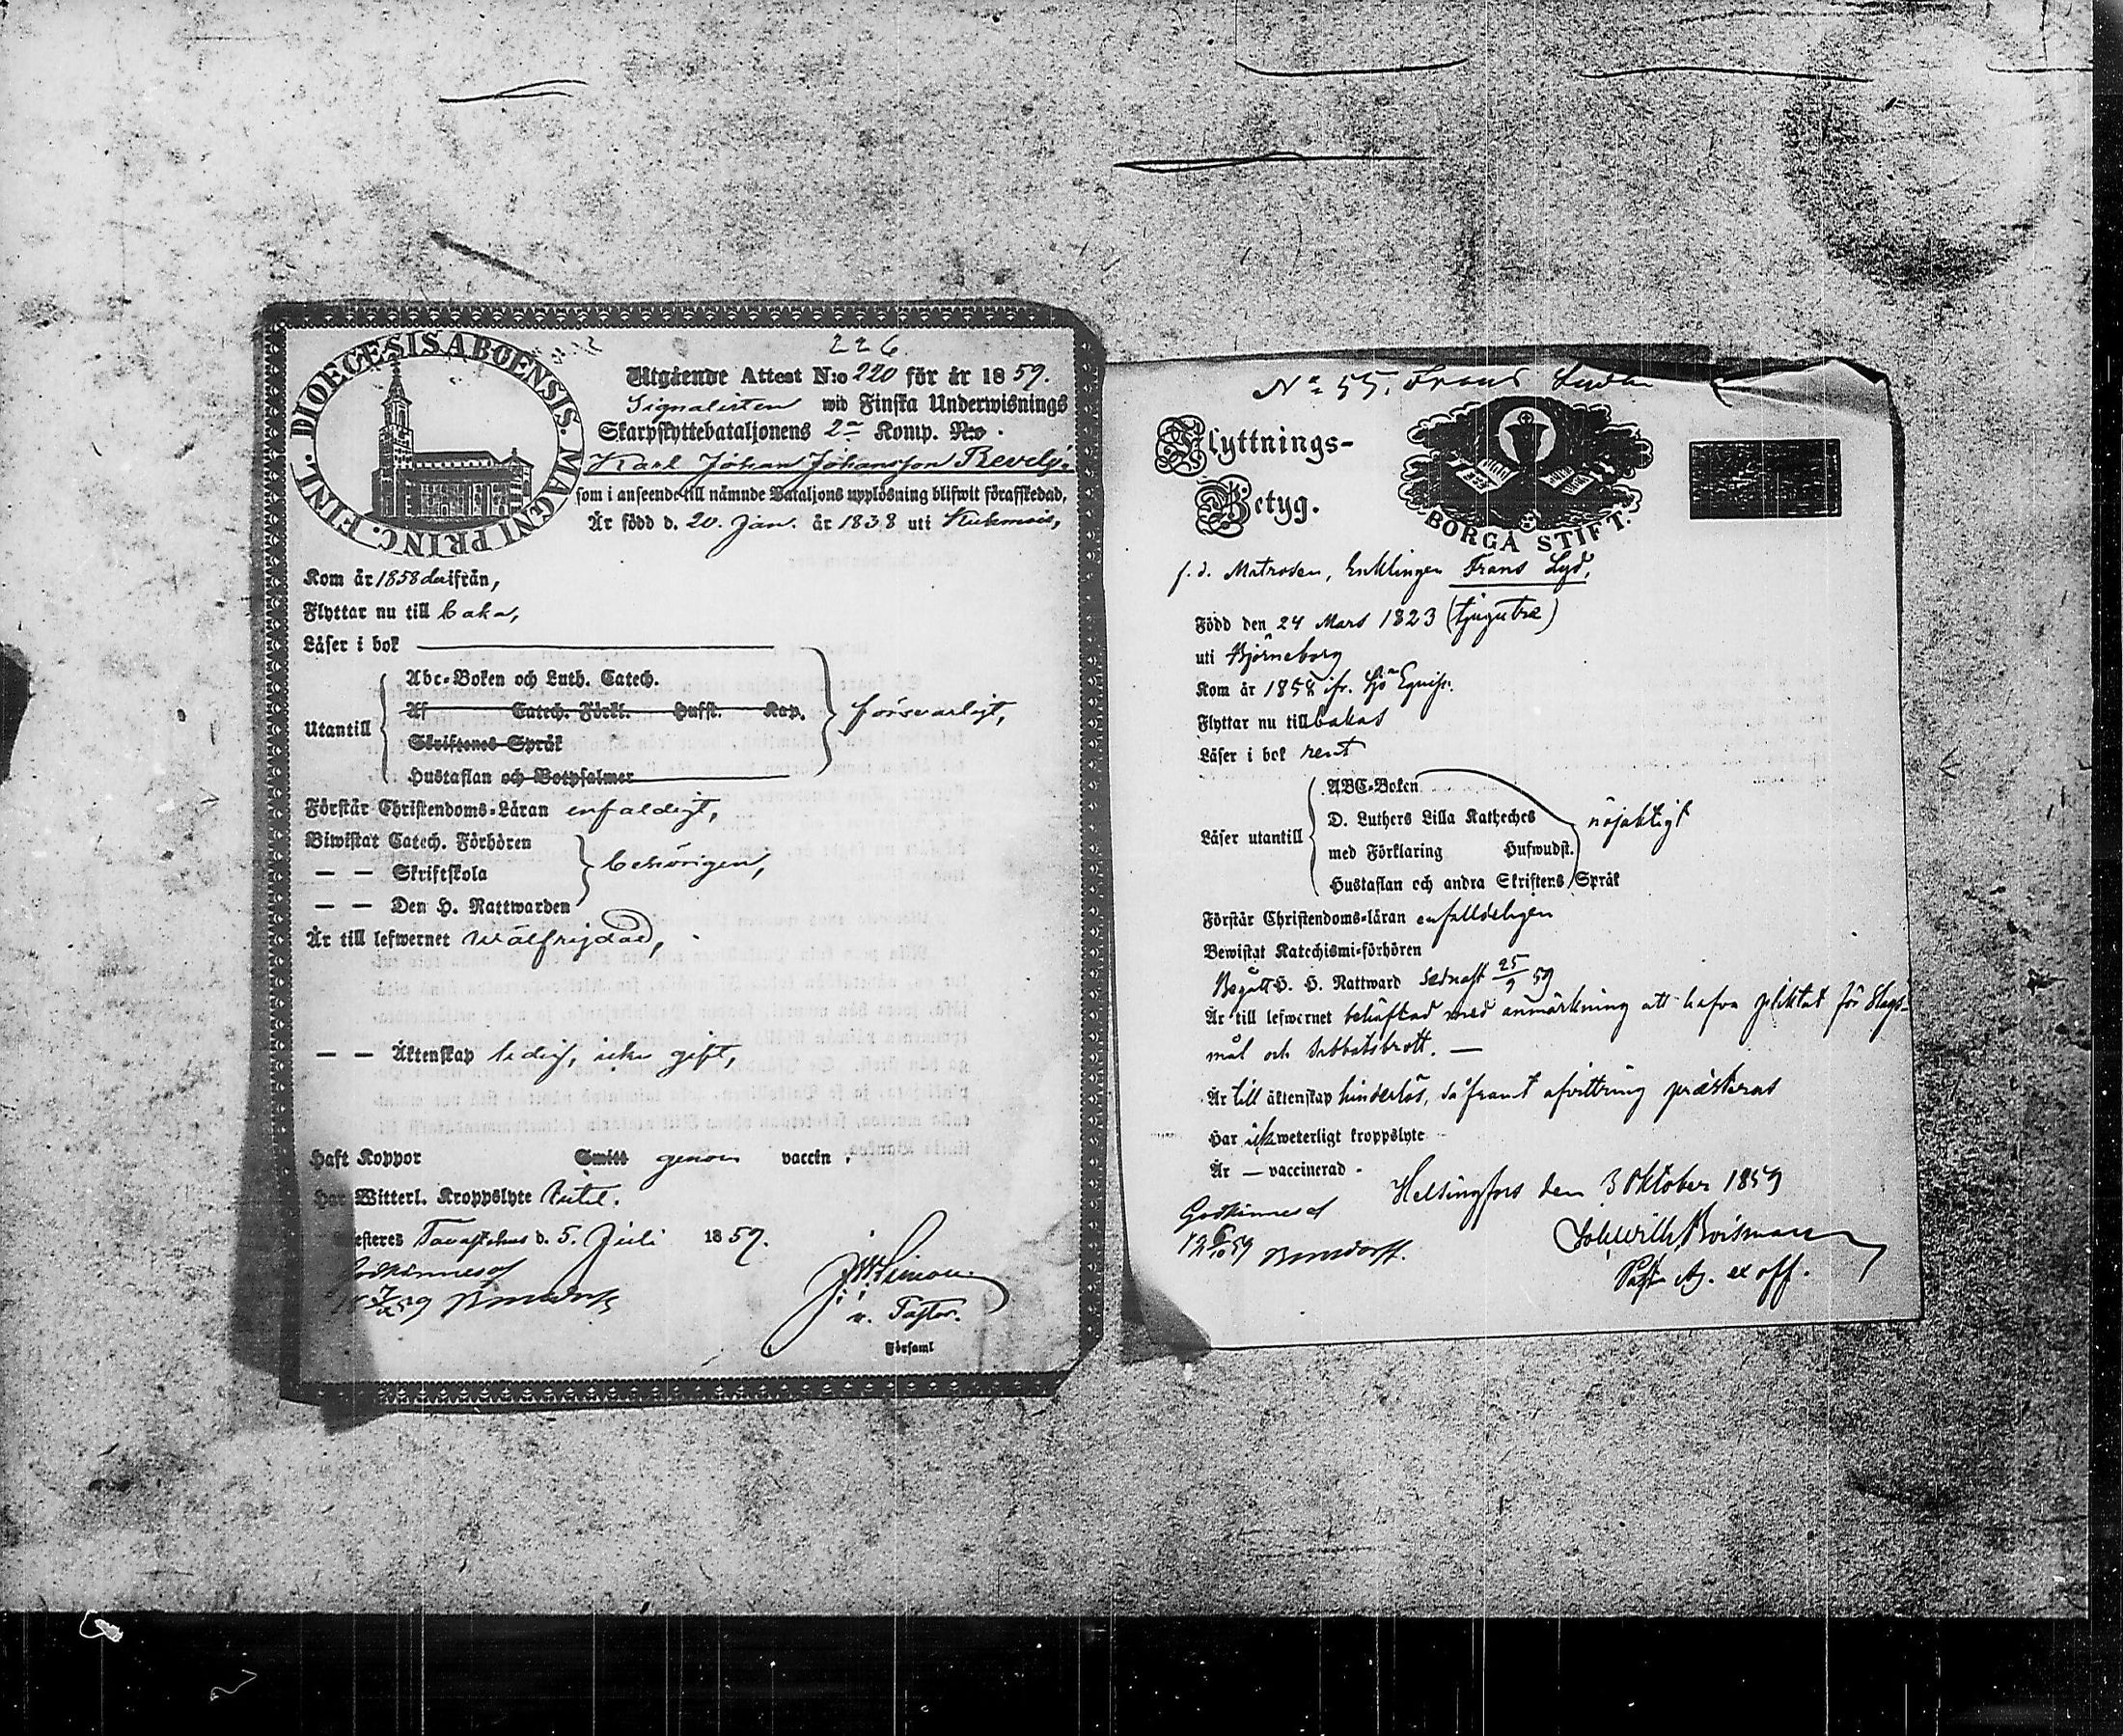 226.
DIOECESIS ABOENSIS. MAGNI PRINC. FINL.
Utgående Attest N:o 220 för år 1859.
Signalisten wid Finska Underwisnings
Skarpskyttebataljonens 2ra Komp. N:o
Karl Johan Johansson Revelj.
som i anseende till nämnde Bataljons upplösning blifwit förafskedad,
Är född d. 20. Jan. år 1838 uti
Kom år 1858 derifrån,
Flyttar nu till baka,
Läser i bok
Abc-Boken och Luth. Catech.
Af Catech. Förkl. Hufst. Kap.
Utantill
försvarligt,
Skriftenes Språk
Hustaflan och Botpsalmer
Förstår Christendoms-Läran enfaldigt,
Biwistat Catech. Förhören
— — Skriftskola
behörigen,
— — Den H. Nattwarden
Är till lefwernet wälfrejdad,
— — Äktenskap ledig, icke gift,
Haft Koppor Smitt genom vaccin.
Har Witterl. Kroppslyte intet.
esteres Tavastehus d. 5. Juli 1859.
Godkännes af
v. Pastor.
Församl
No 55. Frans
Flyttnings-
Betyg.
BORGÅ STIFT.
f. d. Matrosen, Enklingen Frans Lyd,
Född den 24 Mars 1823 (tjugutre)
uti Björneborg
Kom år 1858 ifr. Sjö Equip.
Flyttar nu till bakas
Läser i bok rent
ABC-Boken
D. Luthers Lilla Katheches
nöjaktigt
Läser utantill
med Förklaring Hufwudst.
Hustaflan och andra Skriftens Språk
Förstår Christendoms-läran enfalldeligen
Bewistat Katechismi-förhören
Begått H. H. Nattward sednast 25/9 59
Är till lefwernet behäftad med anmärkning att hafva pliktat för Slags-
mål och Sabbatsbrott. —
Är till äktenskap hinderlös, såframt afvittring prästeras
Har ick weterligt kroppslyte
Är — vaccinerad
Helsingfors den 3 Oktober 1859
Godkännes af
Joh. Wilh. Boisman
Past. Aj. ex off.